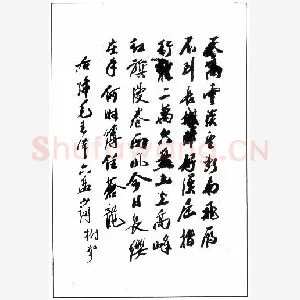 天高雲淡望断南飛雁
不到長城非好漢屈指
行程二萬六盤山上高峰
红旗漫卷西風今日長纓
在手何時縛住蒼龍
毛主席六盤山詞